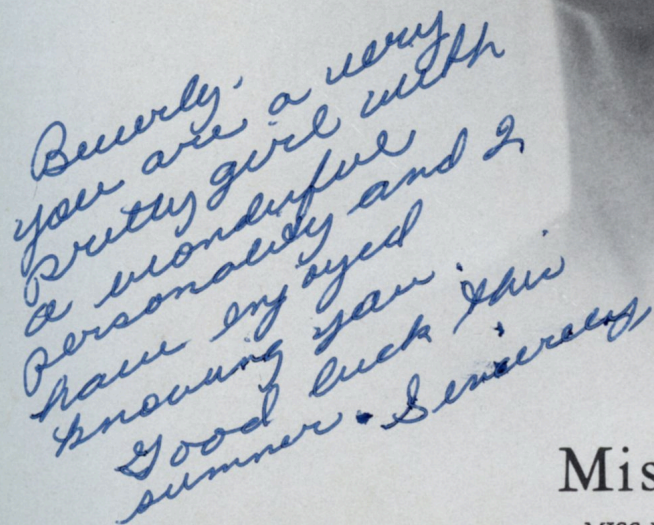 Beverly,
you are a very
pretty girl with
a wonderful
personality and I
have enjoyed
knowing you.
Good luck this
summer. Sincerely,
Mis